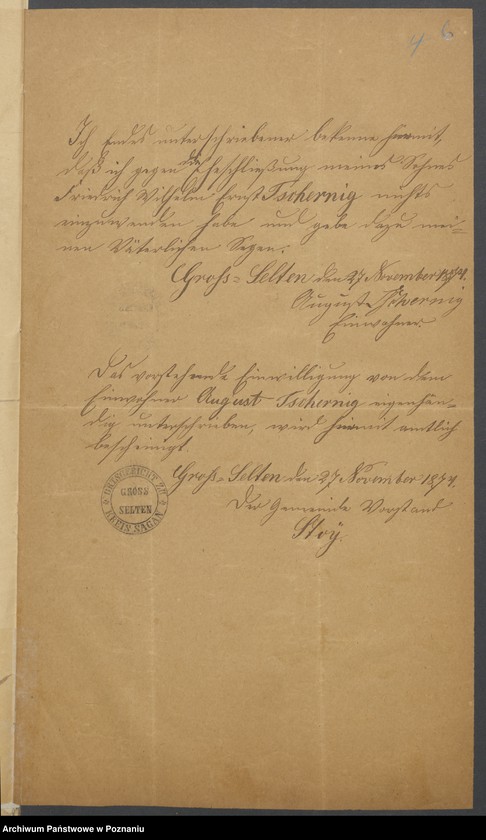 4 6
Ich Endes unterschriebener bekenne hiermit,
daß ich gegen die Eheschließung meines Sohnes
Friedrich Wilhelm Ernst Tschernig nichts
einzuwenden habe und gebe dazu mei=
nen Väterlichen Segen.
Gross=Selten den 27 November 1874.
August Tschernig
Einwohner.
Das vorstehende Einwilligung von dem
Einwohner August Tschernig eigenhän=
dig unterschrieben, wird hiermit amtlich
bescheinigt.
Gross=Selten den 27 November 1874.
Der Gemeinde Vorstand
Stoÿ.
ORTSGERICHT ZU
GROSS
SELTEN
KREIS SAGAN
Archiwum Państwowe w Poznaniu